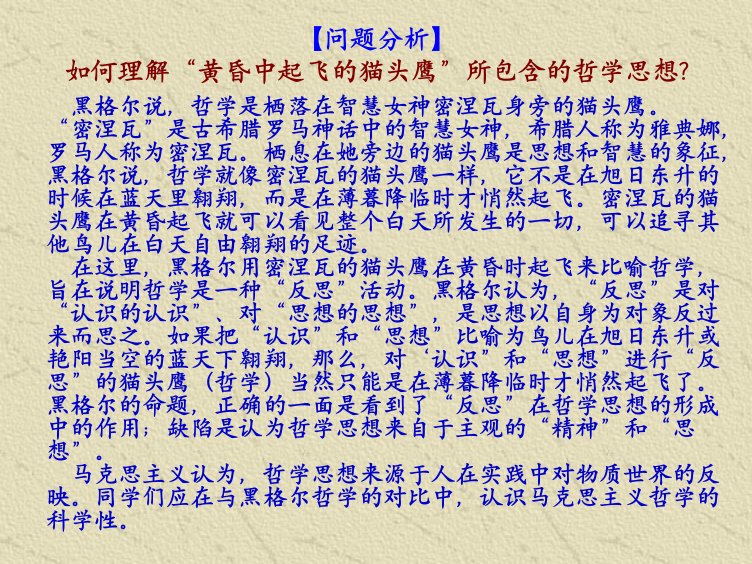 【问题分析】
如何理解“黄昏中起飞的猫头鹰”所包含的哲学思想？
黑格尔说，哲学是栖落在智慧女神密涅瓦身旁的猫头鹰。
“密涅瓦”是古希腊罗马神话中的智慧女神，希腊人称为雅典娜，
罗马人称为密涅瓦。栖息在她旁边的猫头鹰是思想和智慧的象征，
黑格尔说，哲学就像密涅瓦的猫头鹰一样，它不是在旭日东升的
时候在蓝天里翱翔，而是在薄暮降临时才悄然起飞。密涅瓦的猫
头鹰在黄昏起飞就可以看见整个白天所发生的一切，可以追寻其
他鸟儿在白天自由翱翔的足迹。
在这里，黑格尔用密涅瓦的猫头鹰在黄昏时起飞来比喻哲学，
旨在说明哲学是一种“反思”活动。黑格尔认为，“反思”是对
“认识的认识”、对“思想的思想”，是思想以自身为对象反过
来而思之。如果把“认识”和“思想”比喻为鸟儿在旭日东升或
艳阳当空的蓝天下翱翔，那么，对‘认识”和“思想”进行“反
思”的猫头鹰（哲学）当然只能是在薄暮降临时才悄然起飞了。
黑格尔的命题，正确的一面是看到了“反思”在哲学思想的形成
中的作用；缺陷是认为哲学思想来自于主观的“精神”和“思
想”。
马克思主义认为，哲学思想来源于人在实践中对物质世界的反
映。同学们应在与黑格尔哲学的对比中，认识马克思主义哲学的
科学性。